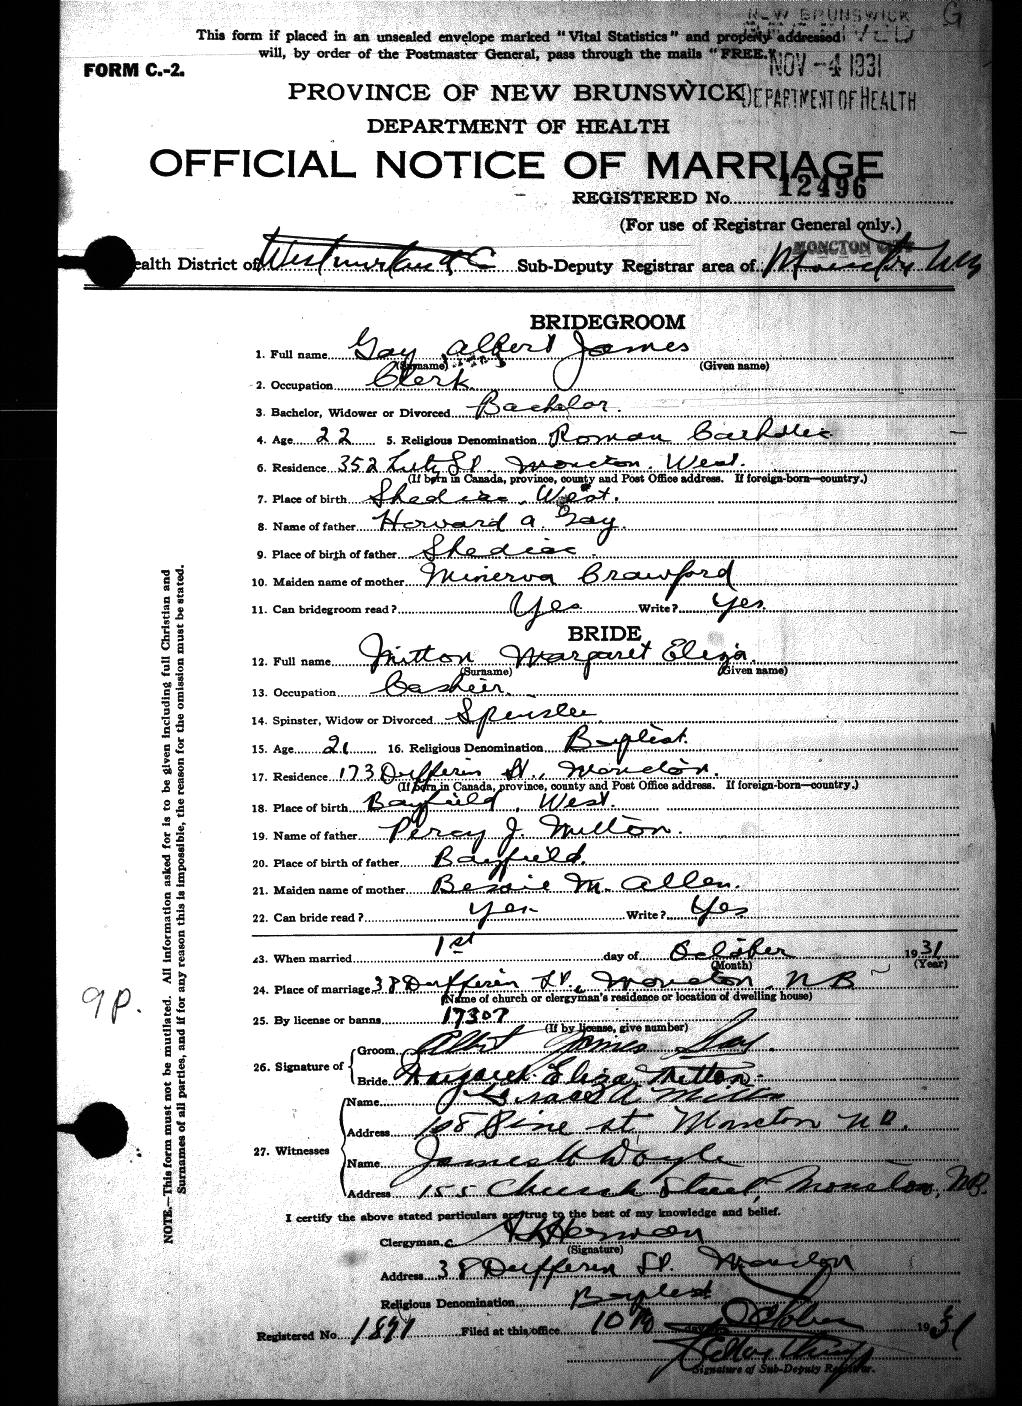 NEW BRUNSWICK
G
This form if placed in an unsealed envelope marked "Vital Statistics" and properly addressed
will, by order of the Postmaster General, pass through the mails "FREE."
NOV -4 1931
FORM C.-2.
PROVINCE OF NEW BRUNSWICK
DEPARTMENT OF HEALTH
DEPARTMENT OF HEALTH
OFFICIAL NOTICE OF MARRIAGE
REGISTERED No. 12496
(For use of Registrar General only.)
MONCTON
ealth District of Sub-Deputy Registrar area of Moncton
BRIDEGROOM
1. Full name Gay Albert James
(Surname) (Given name)
2. Occupation Clerk
3. Bachelor, Widower or Divorced Bachelor.
4. Age 22 5. Religious Denomination Roman Catholic
6. Residence 352 St. Moncton. West.
(If born in Canada, province, county and Post Office address. If foreign-born—country.)
7. Place of birth Shediac, West.
8. Name of father Horward A. Gay.
9. Place of birth of father Shediac.
10. Maiden name of mother Minerva Crawford
11. Can bridegroom read? Yes Write? Yes
BRIDE
12. Full name Mitton Margaret Eliza.
(Surname) (Given name)
13. Occupation Cashier.
14. Spinster, Widow or Divorced Spinster
15. Age 21 16. Religious Denomination Baptist.
17. Residence 173 Dufferin St., Moncton.
(If born in Canada, province, county and Post Office address. If foreign-born—country.)
18. Place of birth Bayfield, West.
19. Name of father Percy J. Mitton.
20. Place of birth of father Bayfield.
21. Maiden name of mother Bessie M. Allen.
22. Can bride read? Yes Write? Yes
23. When married 1st day of October 1931
(Month) (Year)
24. Place of marriage 38 Dufferin St., Moncton, NB
(Name of church or clergyman's residence or location of dwelling house)
25. By license or banns 17307
(If by license, give number)
26. Signature of Groom Albert James Gay.
Bride Margaret Eliza Mitton
27. Witnesses
Name A. Mitton
Address 108 Pine St. Moncton N.B.
Name James W Doyle
Address 155 Church Street, Moncton, N.B.
I certify the above stated particulars are true to the best of my knowledge and belief.
Clergyman Herman
(Signature)
Address 38 Dufferin St. Moncton
Religious Denomination Baptist
Registered No. 1891 Filed at this office 10th day of October 1931
Signature of Sub-Deputy Registrar.
NOTE.—This form must not be mutilated. All information asked for is to be given including full Christian and
Surnames of all parties, and if for any reason this is impossible, the reason for the omission must be stated.
9P.